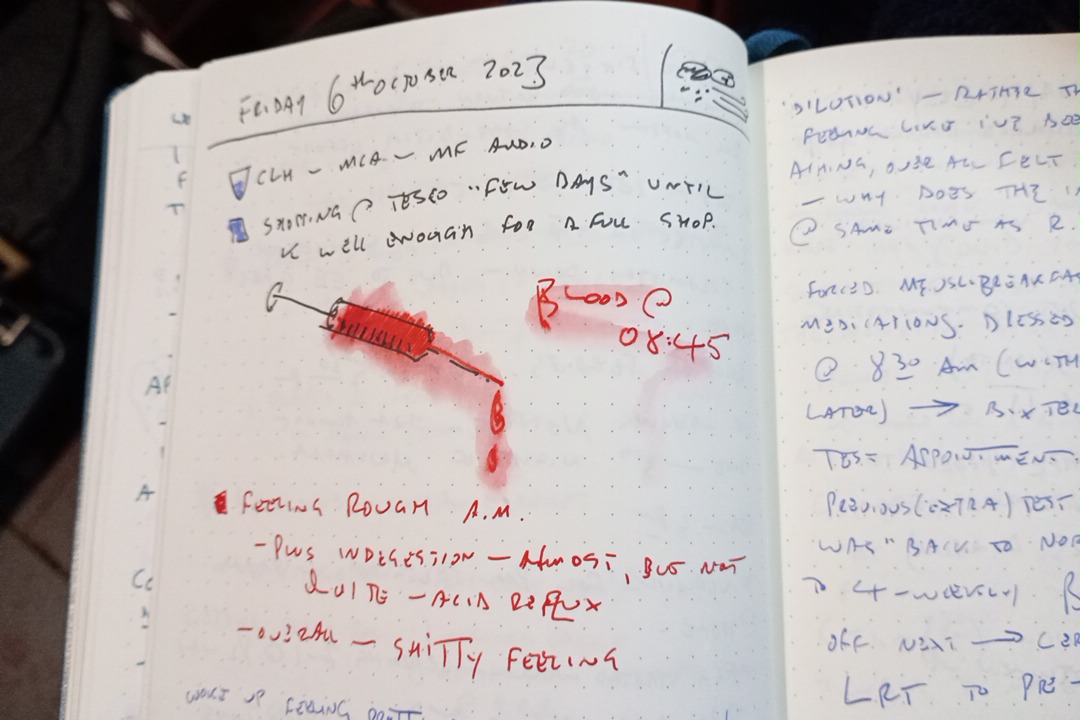 FRIDAY 6th OCTOBER 2023
CLH - MCA - MF AUDIO
SHOPPING @ TESCO "FEW DAYS" UNTIL
K WELL ENOUGH FOR A FULL SHOP.
BLOOD @
08:45
FEELING ROUGH A.M.
- PLUS INDIGESTION - ALMOST, BUT NOT
QUITE - ACID REFLUX
- OVERALL - SHITTY FEELING
WOKE UP FEELING
'DILUTION' - RATHER TH
FEELING LIKE I'VE BEE
AIMING, OVER ALL FELT
- WHY DOES THE
@ SAME TIME AS R.
FORCED MEUSLI BREAKFA
MEDICATIONS. DRESSED
@ 830 AM (WITH
LATER) → BIXTE
TEST APPOINTMENT.
PREVIOUS (EXTRA) TEST
WAS "BACK TO NOR
4-WEEKLY B
OFF NEXT →
LRT TO PRE-